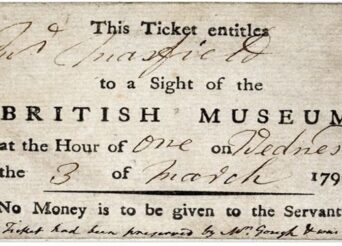 This Ticket entitles
Mr. Maxfield
to a Sight of the
BRITISH MUSEUM
at the Hour of One on Wednes
the 3 of March 179
No Money is to be given to the Servant
Ticket had been preserved by Mr. Gough & was